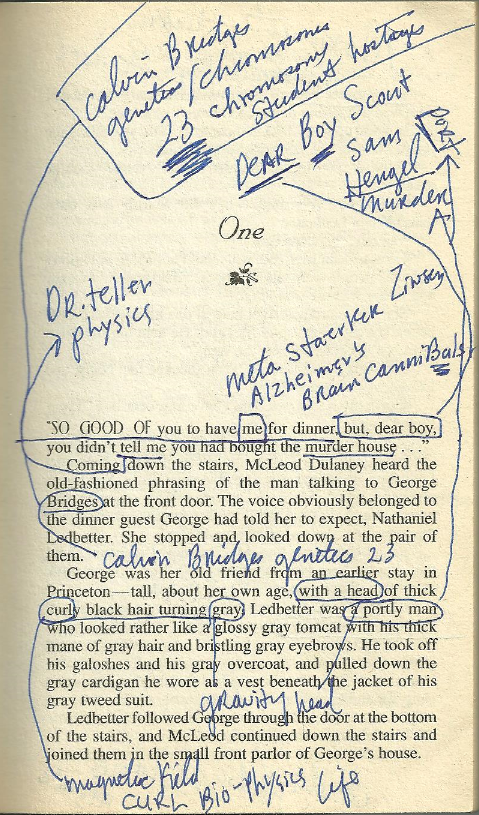 Calvin Bridges
genetics/chromosomes
23 chromosomes
student hostages
DEAR Boy Scout
Sam
Hengel
Murder
PORT
A
One
DR. teller
physics
Meta Staerker Zinser
Alzheimer's
BRain CanniBals
"SO GOOD OF you to have me for dinner, but, dear boy,
you didn't tell me you had bought the murder house . . ."
Coming down the stairs, McLeod Dulaney heard the
old-fashioned phrasing of the man talking to George
Bridges at the front door. The voice obviously belonged to
the dinner guest George had told her to expect, Nathaniel
Ledbetter. She stopped and looked down at the pair of
them.
Calvin Bridges genetics 23
George was her old friend from an earlier stay in
Princeton—tall, about her own age, with a head of thick
curly black hair turning gray. Ledbetter was a portly man
who looked rather like a glossy gray tomcat with his thick
mane of gray hair and bristling gray eyebrows. He took off
his galoshes and his gray overcoat, and pulled down the
gray cardigan he wore as a vest beneath the jacket of his
gray tweed suit.
gravity head
Ledbetter followed George through the door at the bottom
of the stairs, and McLeod continued down the stairs and
joined them in the small front parlor of George's house.
magnetic field
CURL Bio-Physics Life